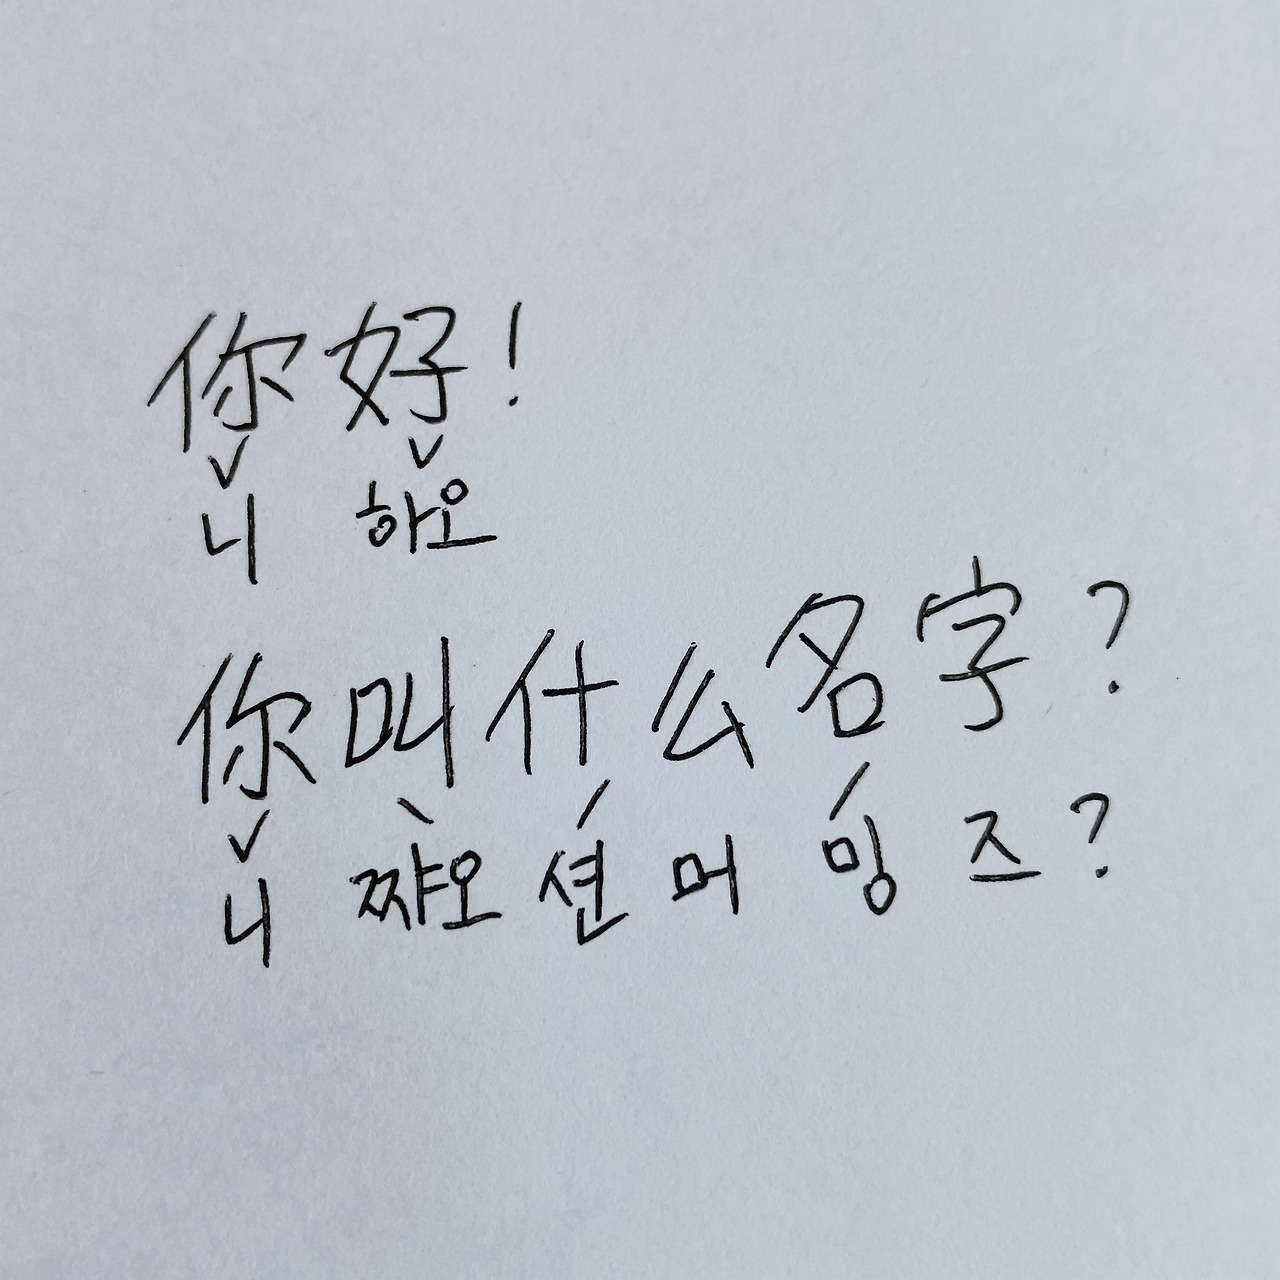 你好!
ˇ ˇ
니 하오
你叫什么名字?
ˇ ˋ ˊ ˊ
니 쨔오 션 머 밍 즈?